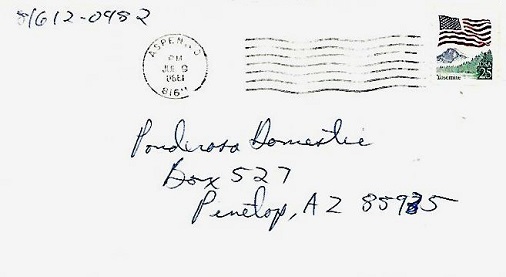 81612-0982
ASPEN, CO
PM
JUL
81611
25
Yosemite
Ponderosa Domestic
Box 527
Pinetop, AZ 85935